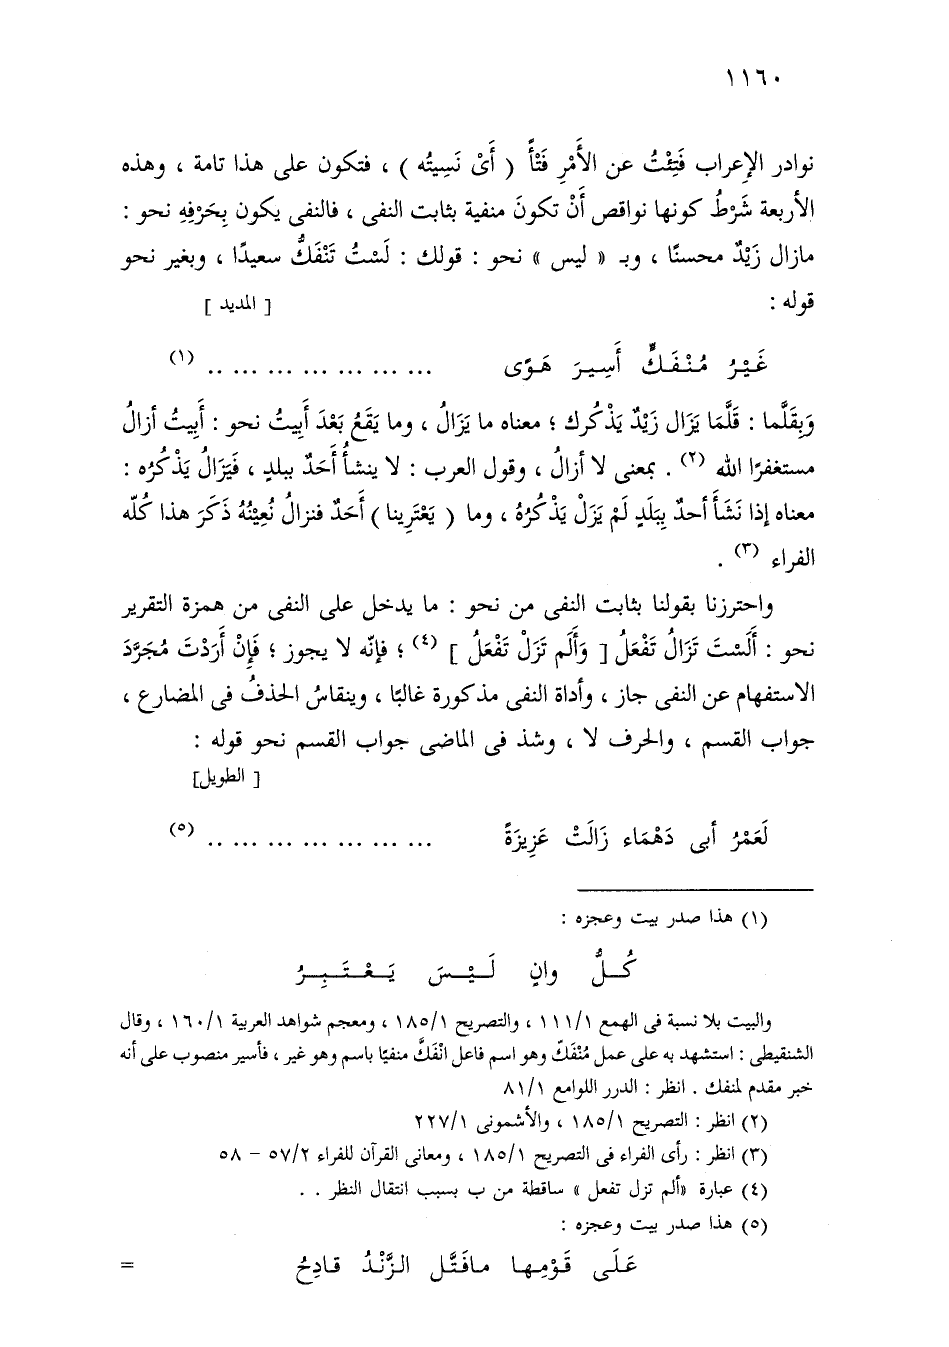 ١١٦٠
نوادر الإعراب فَتِئْتُ عن الأَمْرِ فَتْأً ( أَىْ نَسِيتُه ) ، فتكون على هذا تامة ، وهذه
الأربعة شَرْطُ كونها نواقص أَنْ تكونَ منفية بثابت النفى ، فالنفى يكون بِحَرْفِهِ نحو :
مازال زَيْدٌ محسنًا ، وبـ « ليس » نحو : قولك : لَسْتُ تَنْفَكُّ سعيدًا ، وبغير نحو
قوله :
[ المديد ]
غَيْرُ مُنْفَكٍّ أَسِيرَ هَوًى ... ... ... ... ... ... .. (١)
وَبِقَلَّما : قَلَّمَا يَزَال زَيْدٌ يَذْكُرك ؛ معناه ما يَزَالُ ، وما يَقَعُ بَعْدَ أَبيتُ نحو : أَبِيتُ أزالُ
مستغفرًا الله (٢) . بمعنى لا أزالُ ، وقول العرب : لا ينشأُ أَحَدٌ ببلدٍ ، فَيَزَالُ يَذْكُرُه :
معناه إذا نَشَأَ أحدٌ بِبَلَدٍ لَمْ يَزَلْ يَذْكُرُهُ ، وما ( يَعْتَرِينا ) أَحَدٌ فنزالُ نُعِينُهُ ذَكَرَ هذا كُلَّه
الفراء (٣) .
واحترزنا بقولنا بثابت النفى من نحو : ما يدخل على النفى من همزة التقرير
نحو : أَلَسْتَ تَزَالُ تَفْعَلُ [ وَأَلَم تَزَلْ تَفْعَلُ ] (٤) ؛ فإنّه لا يجوز ؛ فَإِنْ أَرَدْتَ مُجَرَّدَ
الاستفهام عن النفى جاز ، وأداة النفى مذكورة غالبًا ، وينقاسُ الحذفُ فى المضارع ،
جواب القسم ، والحرف لا ، وشذ فى الماضى جواب القسم نحو قوله :
[ الطويل]
لَعَمْرُ أبى دَهْمَاء زَالَتْ عَزِيزَةً ... ... ... ... ... ... .. (٥)
(١) هذا صدر بيت وعجزه :
كُـلُّ وانٍ لَـيْـسَ يَـعْـتَـبِـرُ
والبيت بلا نسبة فى الهمع ١١١/١ ، والتصريح ١٨٥/١ ، ومعجم شواهد العربية ١٦٠/١ ، وقال
الشنقيطى : استشهد به على عمل مُنْفَكّ وهو اسم فاعل انْفَكَّ منفيًا باسم وهو غير ، فأسير منصوب على أنه
خبر مقدم لمنفك . انظر : الدرر اللوامع ٨١/١
(٢) انظر : التصريح ١٨٥/١ ، والأشمونى ٢٢٧/١
(٣) انظر : رأى الفراء فى التصريح ١٨٥/١ ، ومعانى القرآن للفراء ٥٧/٢ – ٥٨
(٤) عبارة «ألم تزل تفعل » ساقطة من ب بسبب انتقال النظر . .
(٥) هذا صدر بيت وعجزه :
عَلَـى قَـوْمِـهـا مـافَتَّـل الـزَّنْـدُ قـادِحُ
=